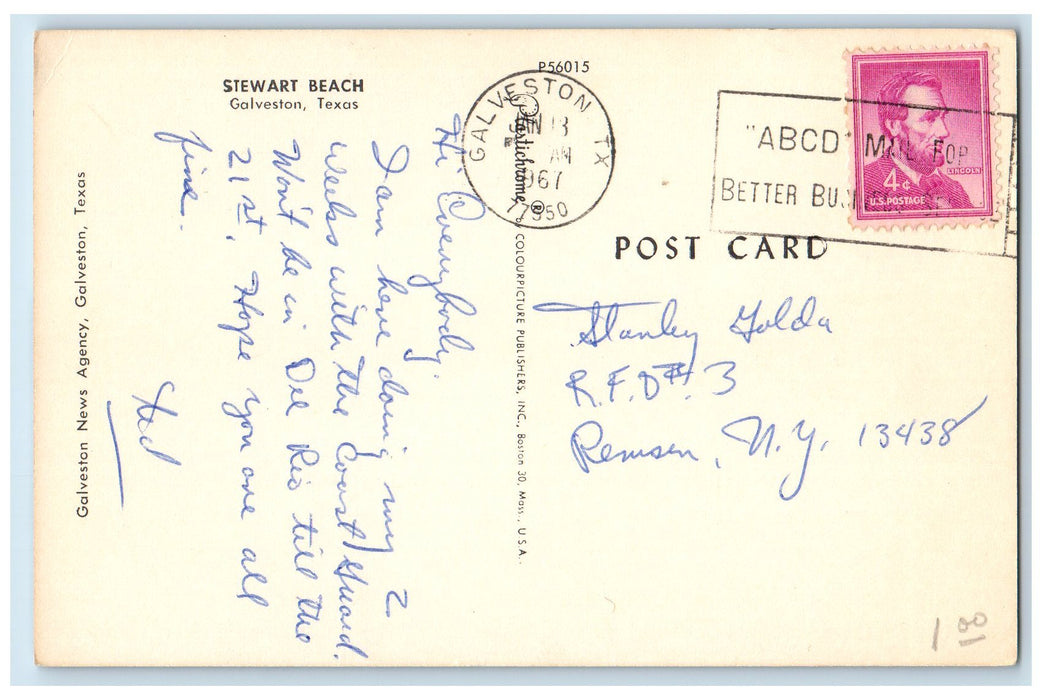 STEWART BEACH
Galveston, Texas
Hi Everybody.
I am here doing my 2
weeks with the Coast Guard.
Won't be in Del Rio till the
21st. Hope you are all
fine.
Ted
Galveston News Agency, Galveston, Texas
P56015
Plastichrome ®
by COLOURPICTURE PUBLISHERS, INC., Boston 30, Mass., U.S.A.
GALVESTON TX
13
AM
1967
77550
"ABCD" MAIL FOR
BETTER BUSINESS
4¢
LINCOLN
U.S. POSTAGE
POST CARD
Stanley Golda
R.F.D #. 3
Remsen, N.Y. 13438
1 00